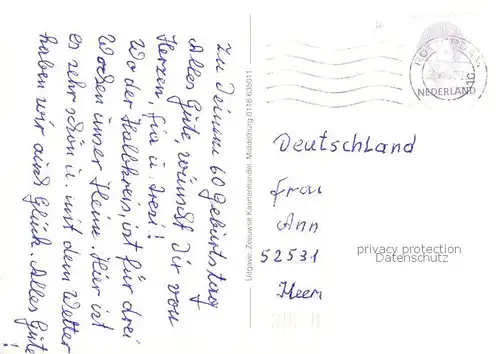 Zu Deinem 60 Geburtstag
Alles Gute, wünscht Dir von
Herzen, Fia u. Uresi!
Wo der Halbkreis, ist für drei
Wochen unser Heim. Hier ist
es sehr schön u. mit dem Wetter
haben wir auch Glück. Alles Gute!
Uitgave: Zeeuwse Kaartenhandel, Middelburg 0118 635011
NEDERLAND
Deutschland
Frau
Ann
52531
Heer
privacy protection
Datenschutz